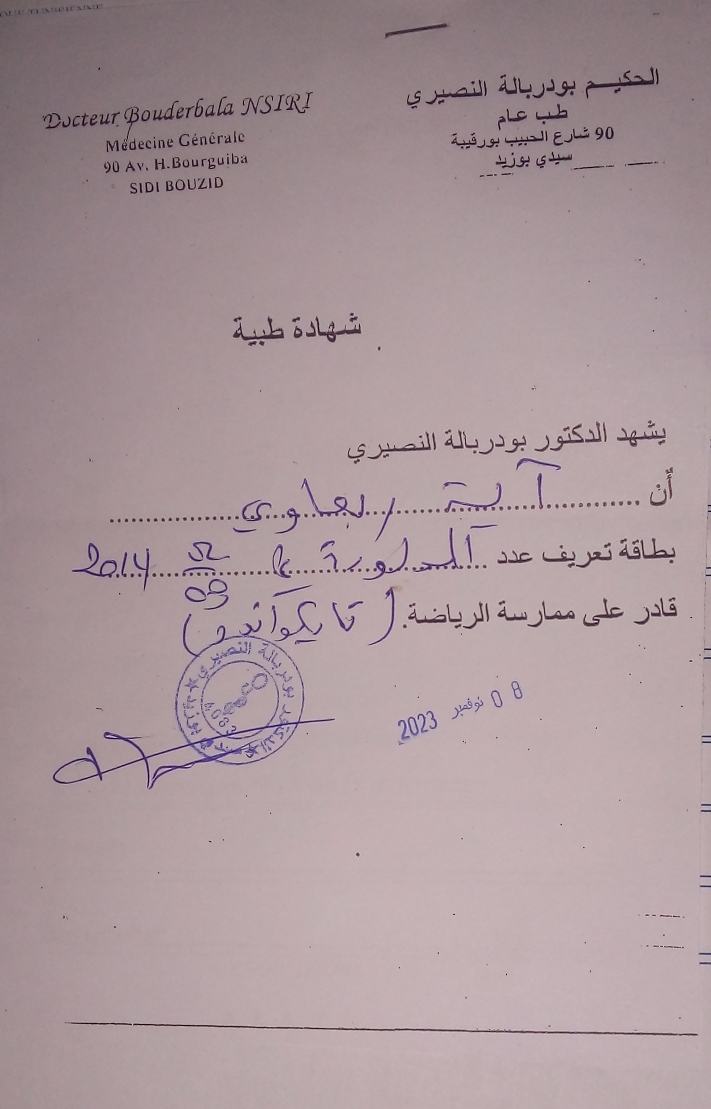 Docteur Bouderbala NSIRI
Médecine Générale
90 Av. H.Bourguiba
SIDI BOUZID
الحكيم بودربالة النصيري
طب عام
90 شارع الحبيب بورقيبة
سيدي بوزيد
شهادة طبية
يشهد الدكتور بودربالة النصيري
أنّ آية ربعاوي
بطاقة تعريف عدد المولودة 2014
قادر على ممارسة الرياضة. (تايكواندو)
08 نوفمبر 2023